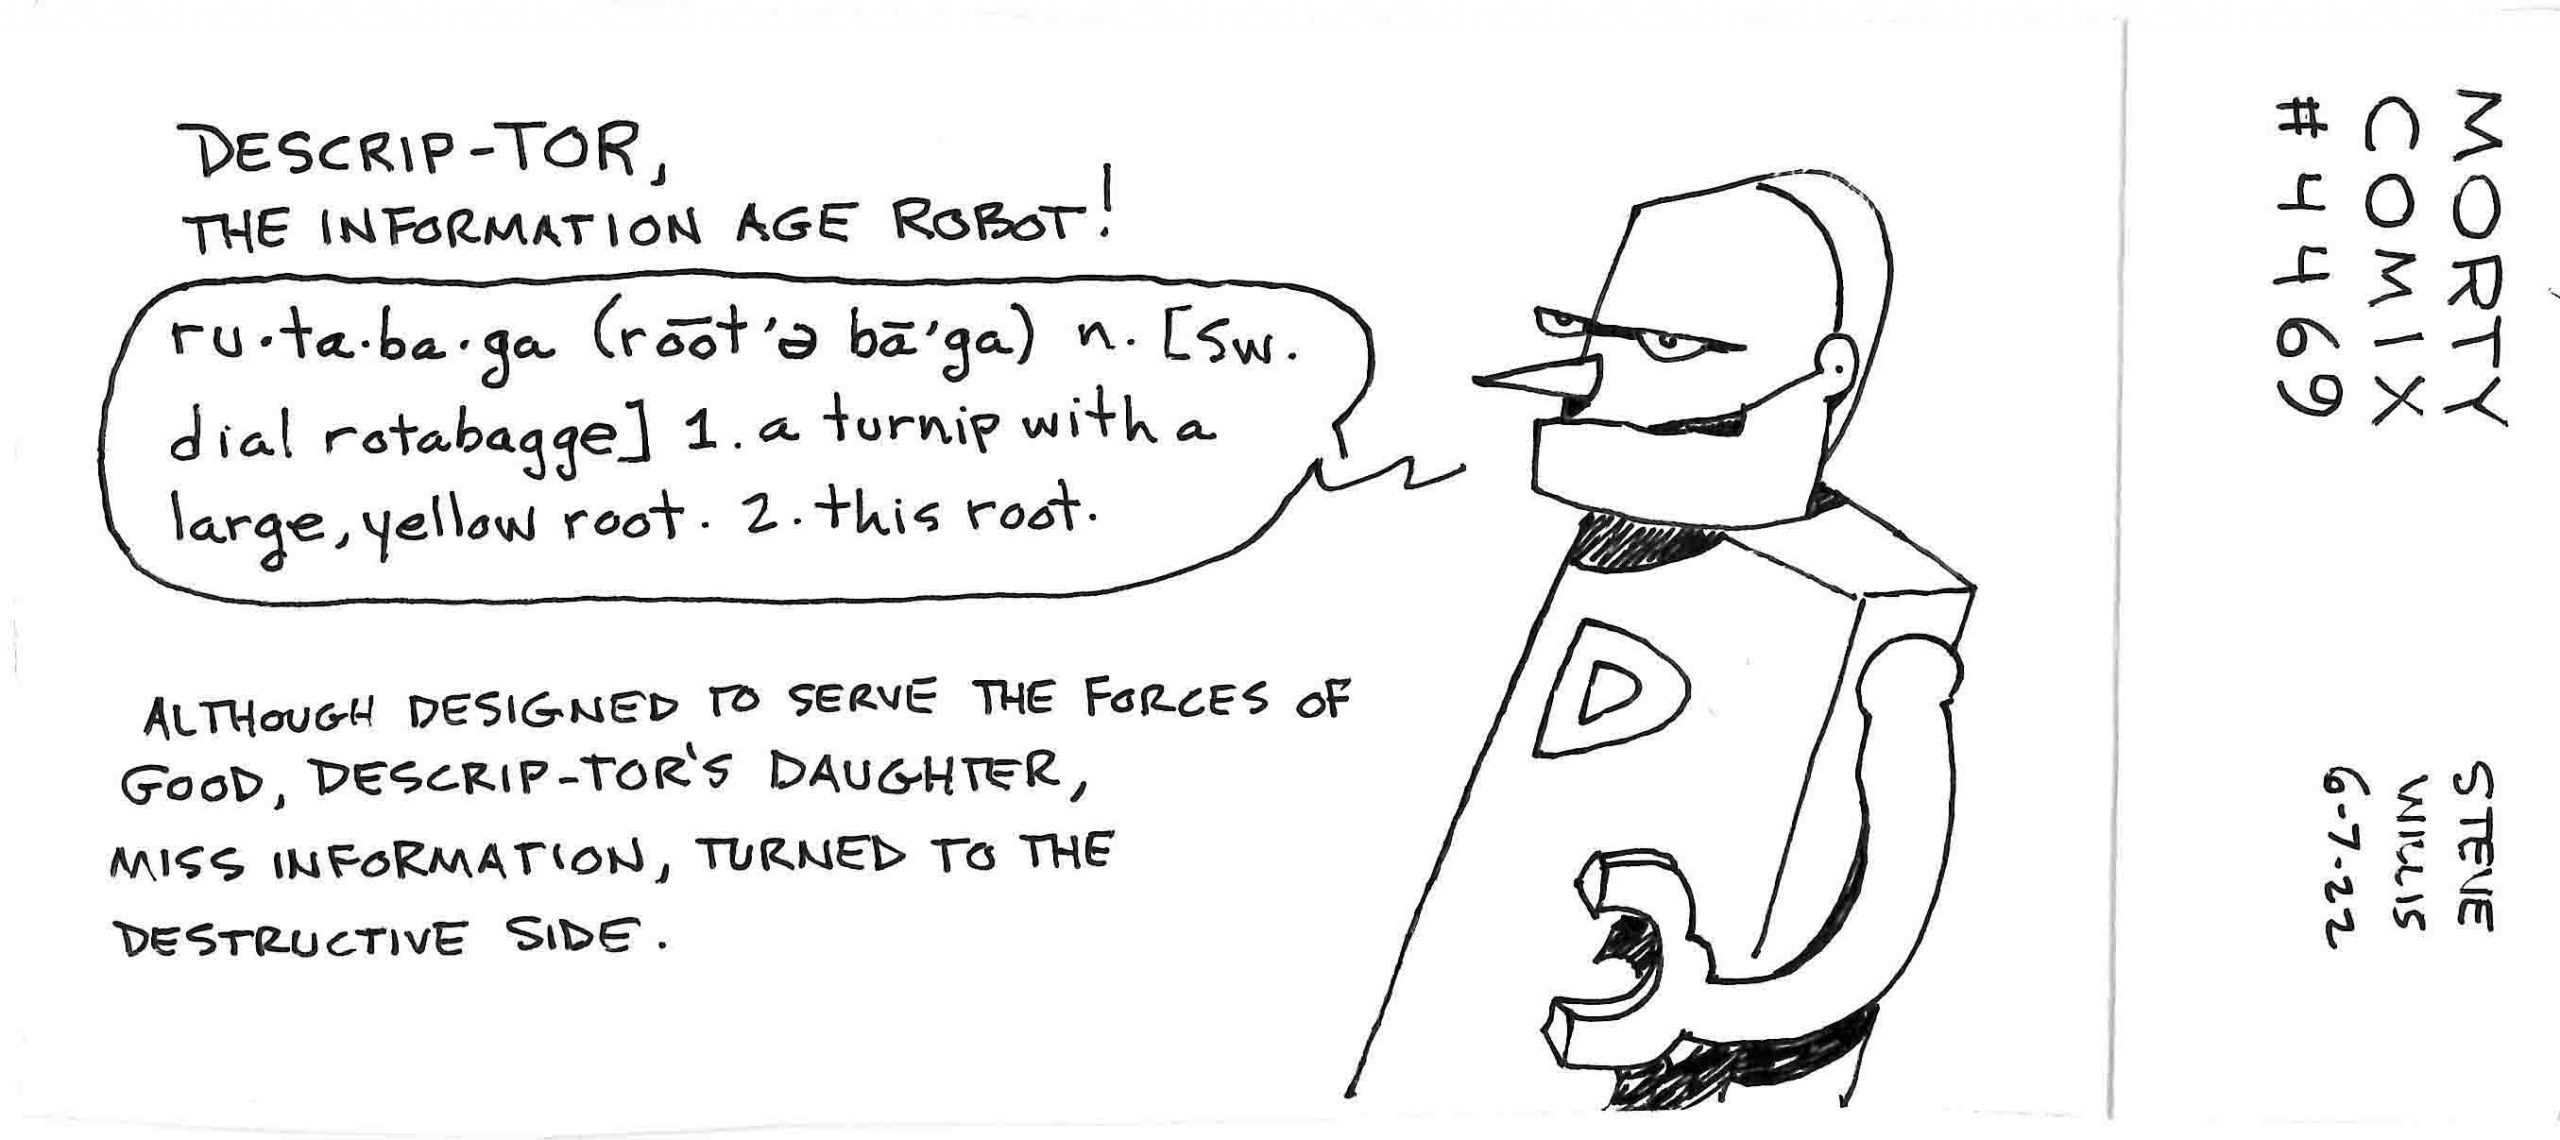 DESCRIP-TOR,
THE INFORMATION AGE ROBOT!
ru·ta·ba·ga (ro͞ot'ə bā'ga) n. [Sw.
dial rotabagge] 1. a turnip with a
large, yellow root. 2. this root.
ALTHOUGH DESIGNED TO SERVE THE FORCES OF
GOOD, DESCRIP-TOR'S DAUGHTER,
MISS INFORMATION, TURNED TO THE
DESTRUCTIVE SIDE.
D
MORTY
COMIX
#4469
STEVE
WILLIS
6-7-22